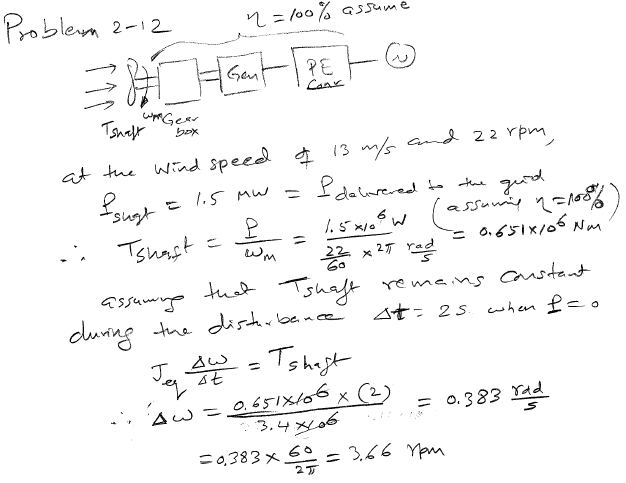 Problem 2-12
η = 100% assume
Gen
PE
Conv
Tshaft ωm Gear
box
at the wind speed of 13 m/s and 22 rpm,
Pshaft = 1.5 MW = Pdelivered to the grid
(assuming η = 100%)
∴ Tshaft = P / ωm = 1.5 x 10^6 W / (22/60 x 2π rad/s) = 0.651 x 10^6 Nm
assuming that Tshaft remains constant
during the disturbance Δt = 2s when P = 0
Jeq Δω/Δt = Tshaft
∴ Δω = 0.651 x 10^6 x (2) / 3.4 x 10^6 = 0.383 rad/s
= 0.383 x 60/2π = 3.66 rpm